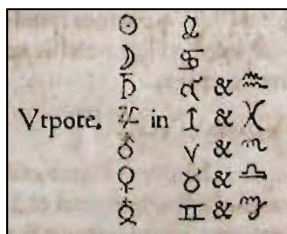 ☉ ♌
☽ ♋
♄ ♑ & ♒
Vtpote. ♃ in ♐ & ♓
♂ ♈ & ♏
♀ ♉ & ♎
☿ ♊ & ♍